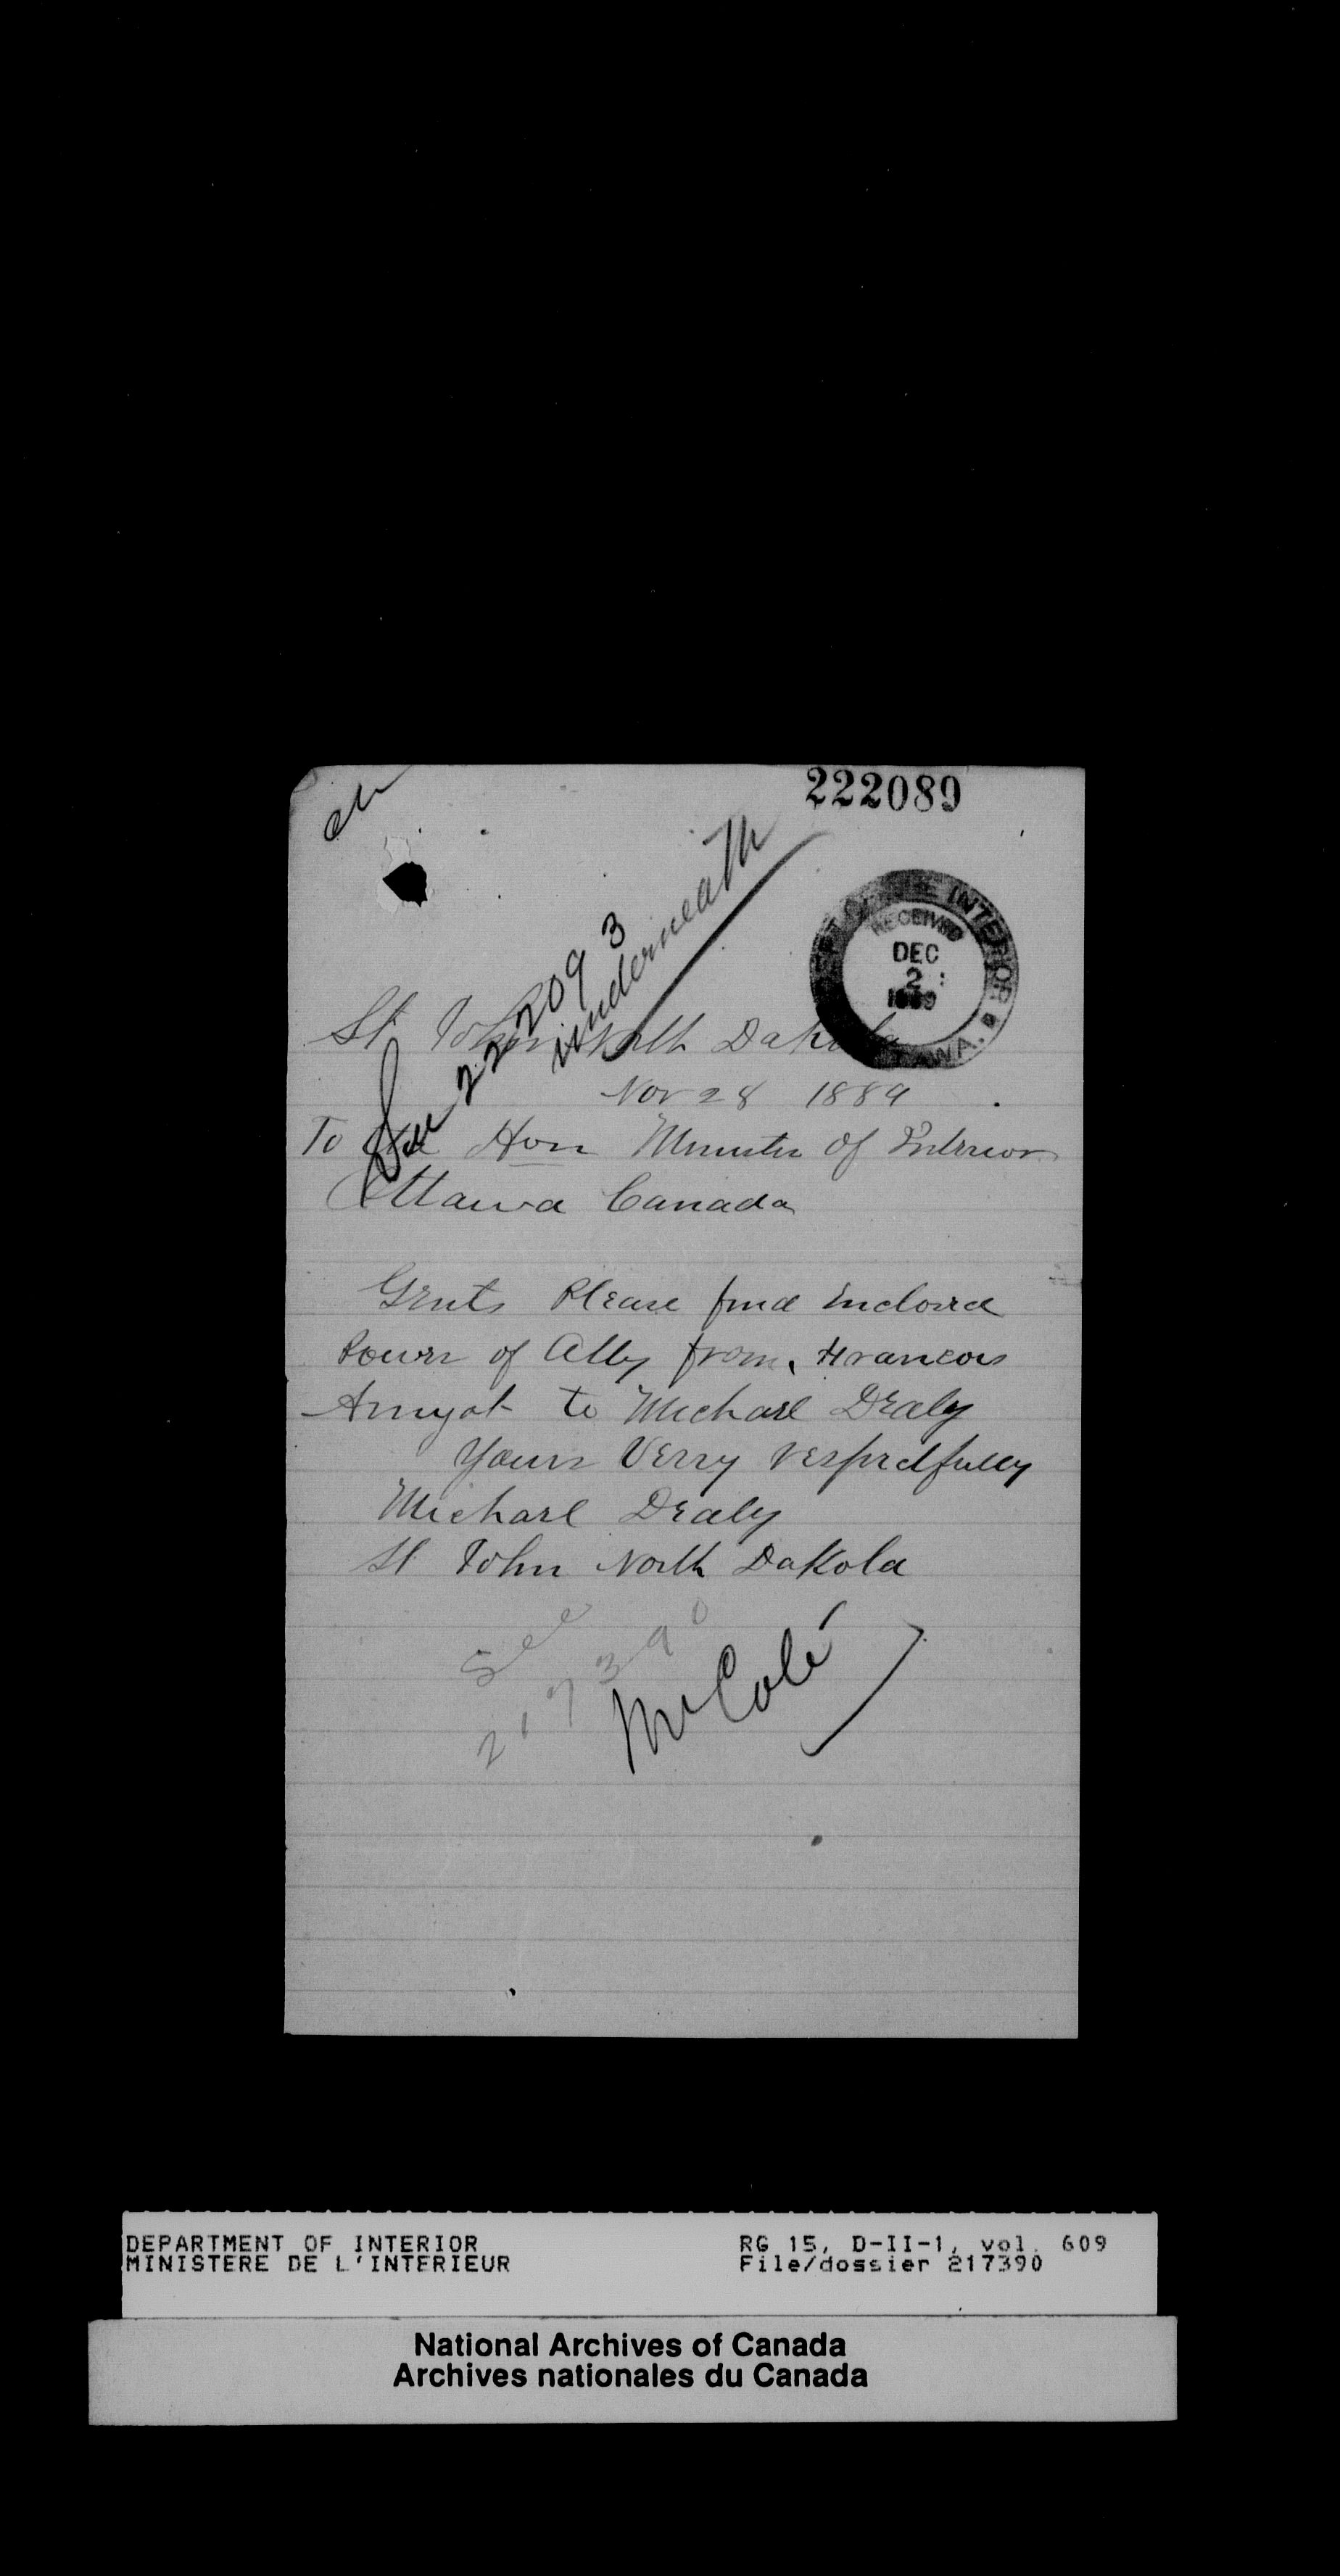 222089
See 222093
underneath
RECEIVED
DEC
2
1889
INTERIOR
St John North Dakota
Nov 28 1889
To the Hon Minister of Interior
Ottawa Canada
Gents Please find Enclosed
Power of Atty from Francois
Amyot to Michael Dealy
Yours Verry respectfully
Michael Dealy
St John North Dakota
See
217390
Mr Colé
DEPARTMENT OF INTERIOR
MINISTERE DE L'INTERIEUR
RG 15, D-II-1, vol. 609
File/dossier 217390
National Archives of Canada
Archives nationales du Canada